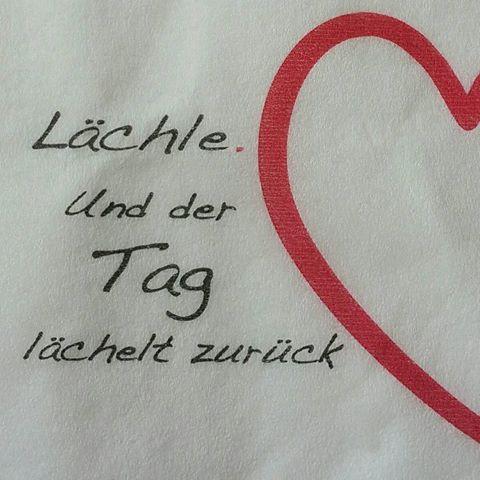 Lächle.
Und der
Tag
lächelt zurück